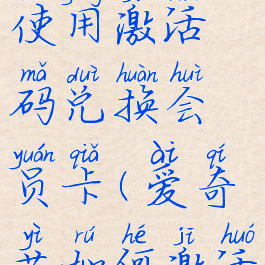 使用激活
mǎ duì huàn huì
码兑换会
yuán qiǎ ài qí
员卡(爱奇
yì rú hé jī huó
艺如何激活